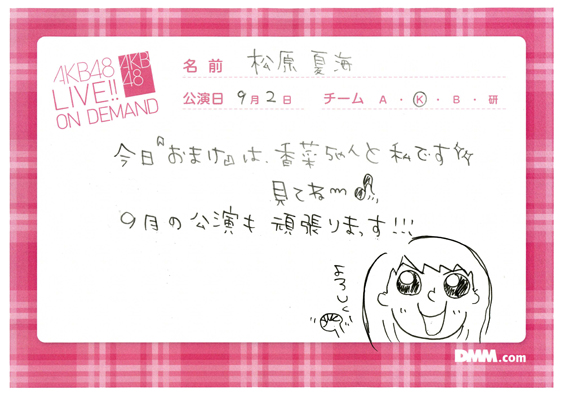 AKB48
LIVE!!
ON DEMAND
AKB
48
名前 松原夏海
公演日 9月2日 チーム A・K・B・研
今日『おまけ』は、香菜ちゃんと私です☆☆
見てねm
9月の公演も頑張りまっす!!!
よろしく
DMM.com